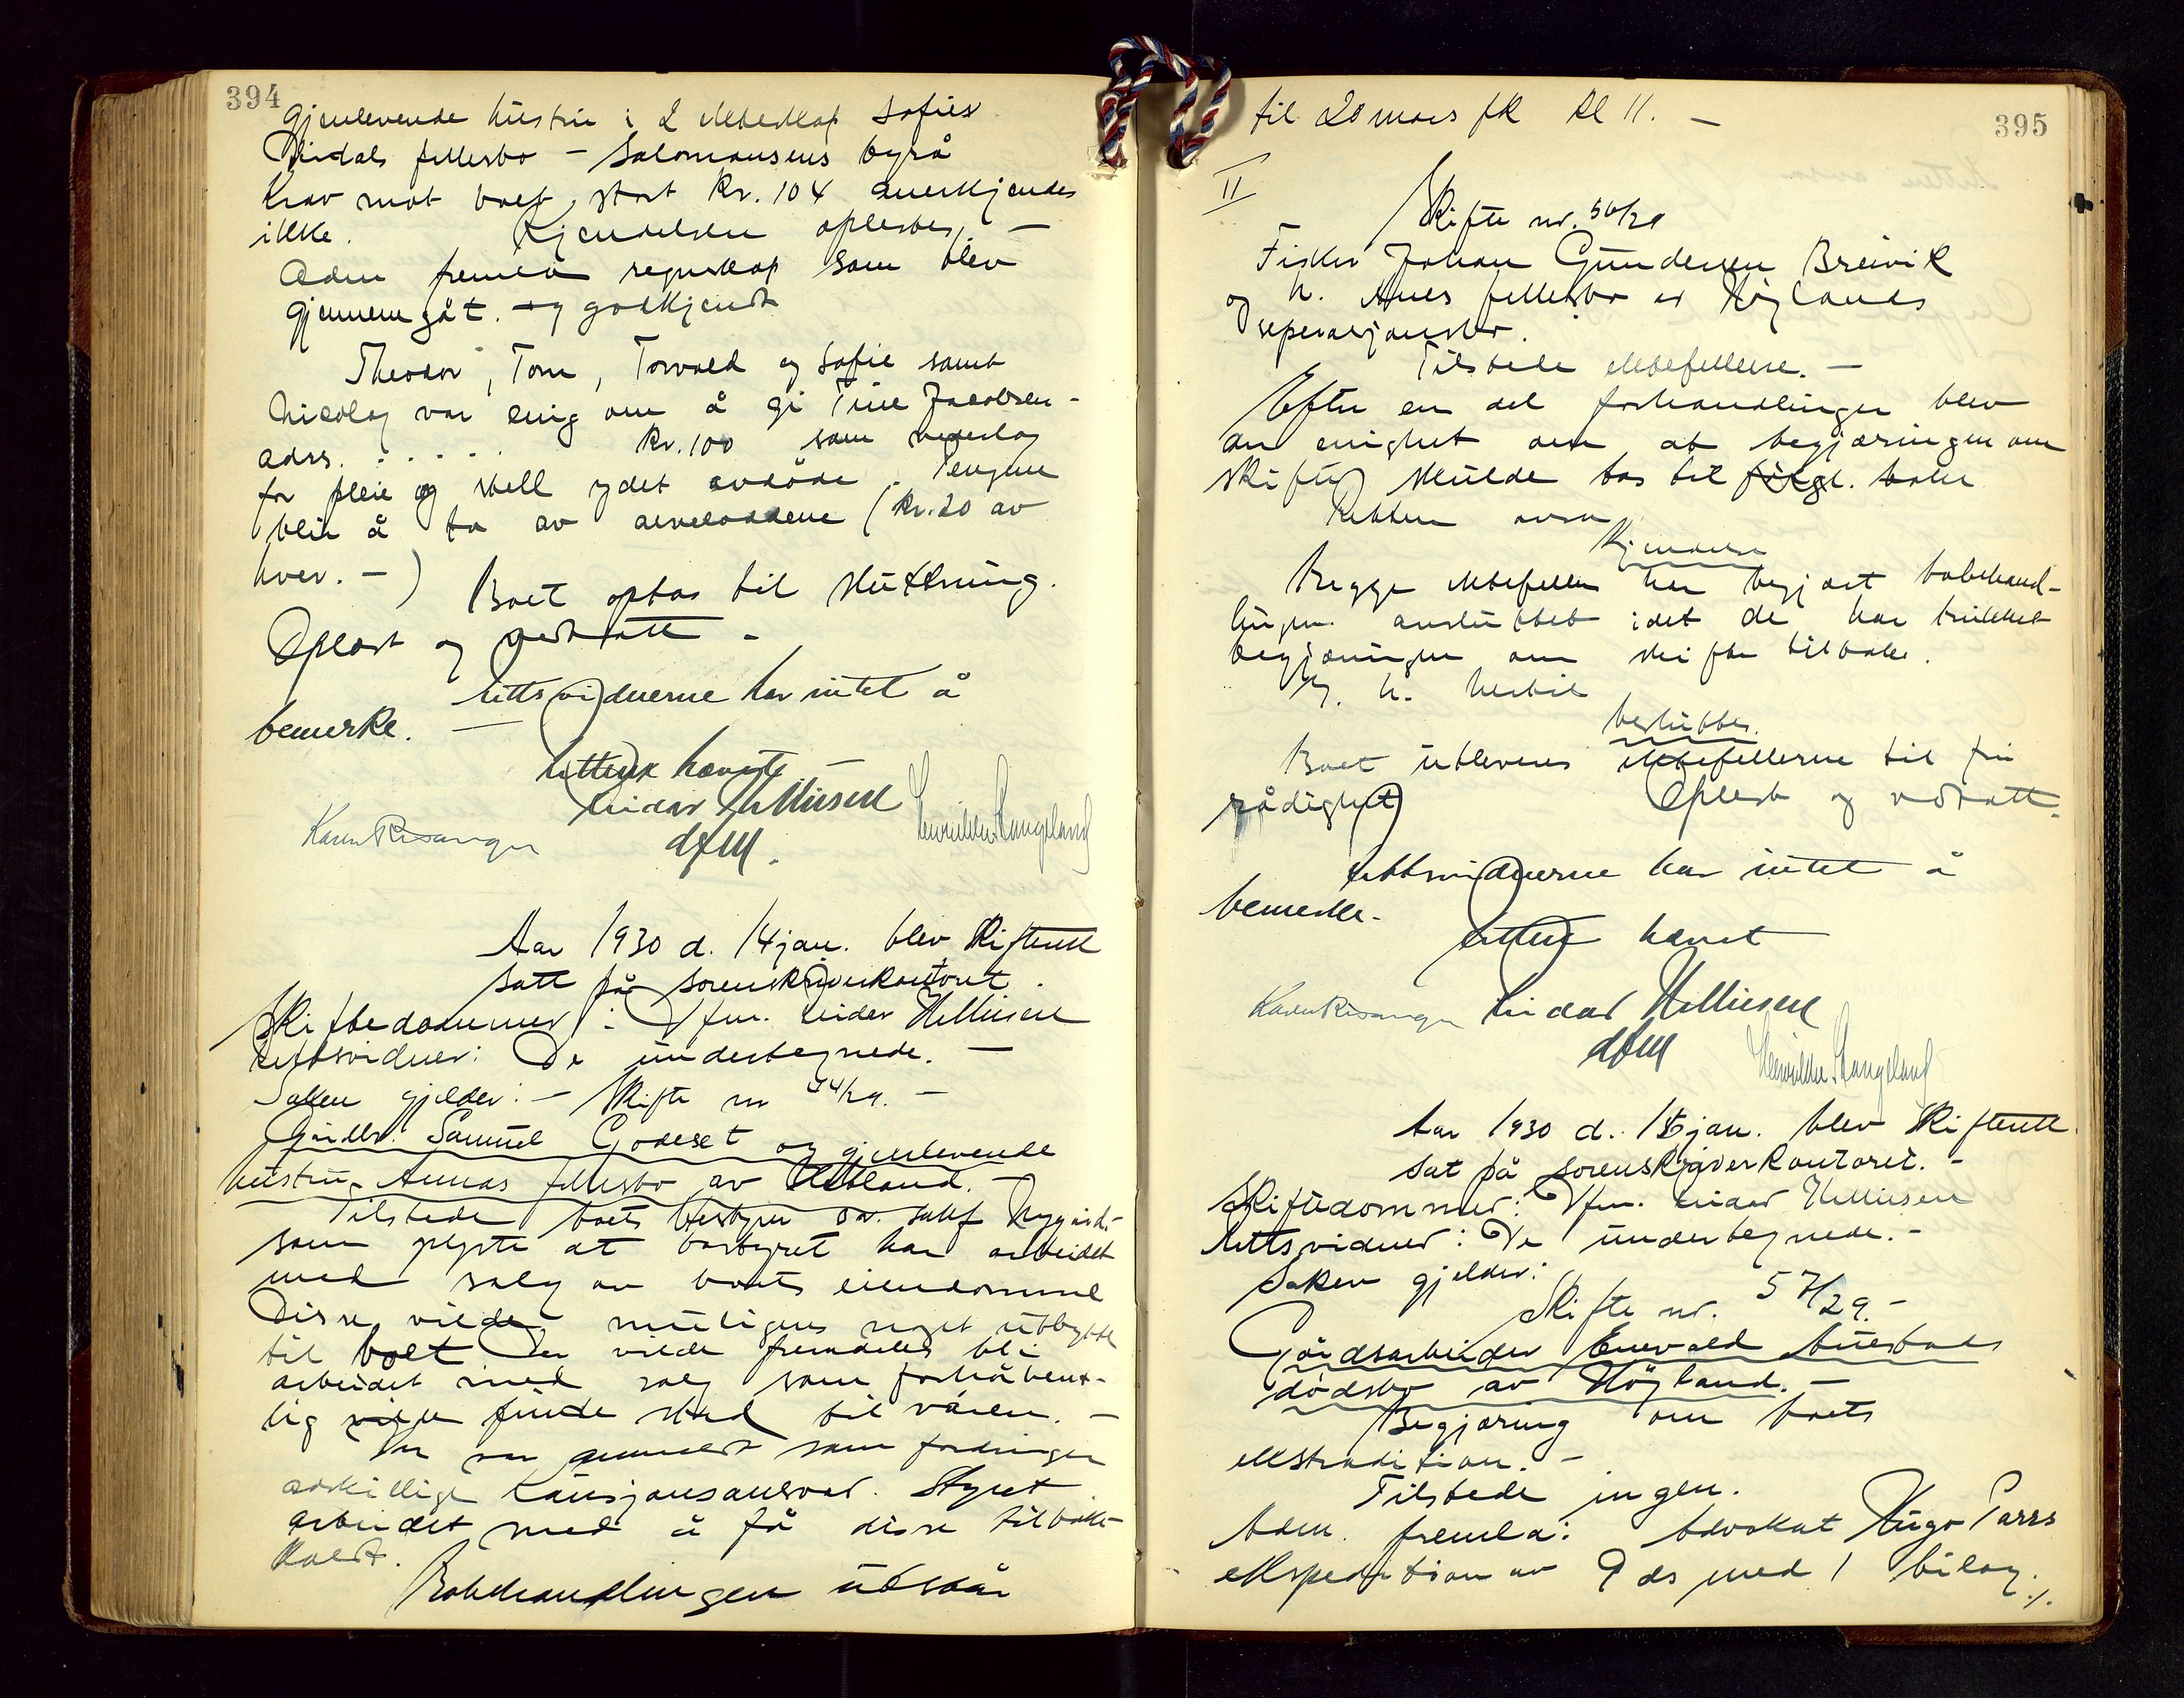 394
gjenlevende hustru i 2 ekteskap Sofies
fellesbo - Salomonsens byrå
krav mot boet stort kr. 104 anerkjendes
ikke. Kjendelsen oplestes. -
Adm fremla regnskap som blev
gjennemgåt. og godkjendt
Theodor, Tom, Torvald og Sofie samt
Nicolay var enig om å gi Tine Jacobsen -
adrs. . . . . . kr. 100 som vederlag
for pleie og stell ydet avdöde. Pengene
blir å ta av arveloddene (kr. 20 av
hver. - ) Boet optas til sluttning.
Oplest og vedtatt -
Rettsvidnerne har intet å
bemerke. -
Retten hævet -
Reidar Melliesen
dfm.
Karen Risanger
Stangeland
Aar 1930 d. 14 jan. blev skifterett
satt på sorenskriverkontoret.
Skiftedommer: Dfm. Reidar Melliesen
Rettsvidner: De undertegnede. -
Saken gjelder: - Skifte nr 44/29. -
Gårdbr. Samuel Godeset og gjenlevende
hustru Annas fellesbo av
Tilstede boets bestyrer o.r. sakf Nygård -
som oplyste at bostyret har arbeidet
med salg av boets eiendommer
Disse vilde muligens noget utbytte
til boet Der vilde fremdeles bli
arbeidet med salg som forhåbent-
lig vilde finde sted til våren. -
Der var anmeldt som fordringer
adskillige kausjonsansvar. Styret
arbeidet med å få disse tilbake-
kaldt.
Bobehandlingen utstår
395
til 20 mars fk kl 11. -
II
Skifte nr. 56/29
Fisker Johan Gundersen Breivik
og h. Anes fellesbo av Höylands
seperasjonsbo.
Tilstede ektefellene. -
Efter en del forhandlinger blev
der enighet om at begjæringen om
skifte skulde tas tilbake
Retten avsa
Kjendelse
Begge ektefeller har begjært bobehand-
lingen avsluttet idet de har trukket
begjæringen om skifte tilbake.
besluttes
Boet utleveres ektefellerne til fri
rådighet Oplest og vedtatt.
Rettsvidnerne har intet å
bemerke -
Retten hævet
Karen Risanger Reidar Melliesen
dfm
Stangeland
Aar 1930 d. 15 jan. blev skifterett
sat på sorenskriverkontoret. -
Skiftedommer: Dfm. Reidar Melliesen
Rettsvidner: De undertegnede. -
Saken gjelder:
Skifte nr. 57/29. -
Gårdsarbeider Enevald Auestads
dödsbo av Höyland. -
Begjæring om boets
ekstradition. -
Tilstede ingen.
Adm. fremla: Advokat Hugo Parrs
ekspedition av 9 ds med 1 bilag.
./.